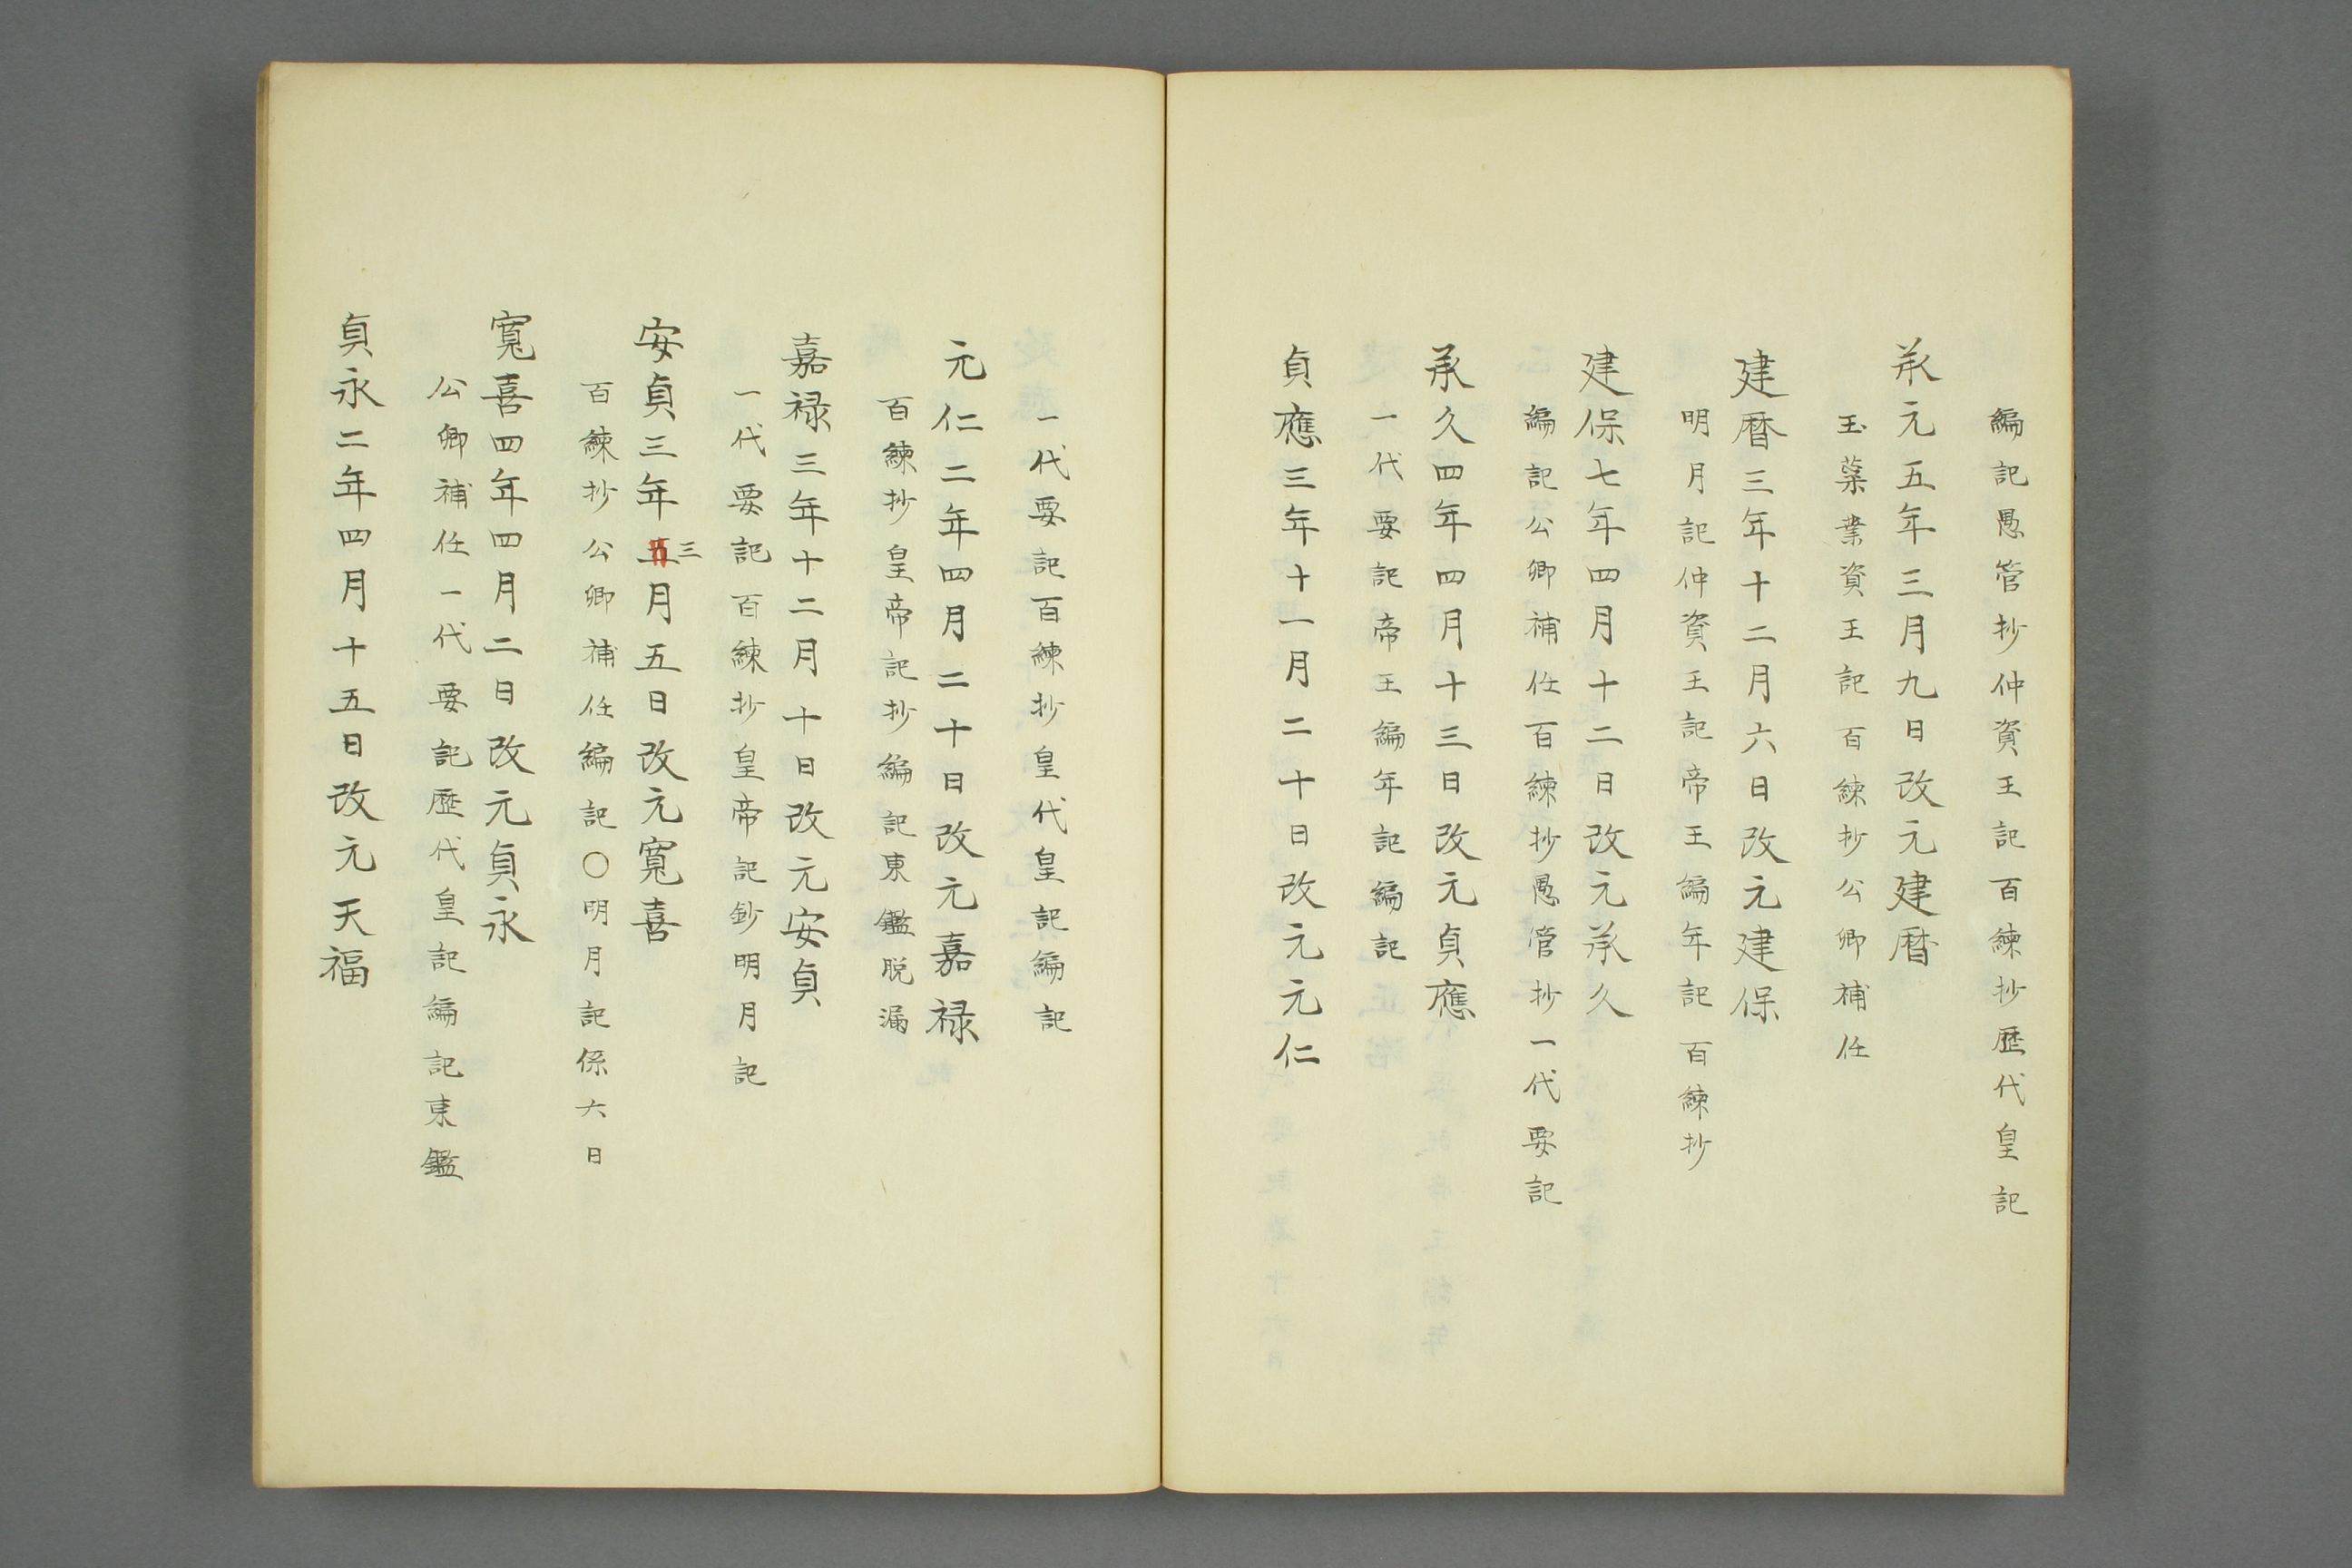 編記愚管抄仲資王記百練抄歴代皇記
承元五年三月九日改元建暦
玉葉業資王記百練抄公卿補任
建暦三年十二月六日改元建保
明月記仲資王記帝王編年記百練抄
建保七年四月十二日改元承久
編記公卿補任百練抄愚管抄一代要記
承久四年四月十三日改元貞應
一代要記帝王編年記編記
貞應三年十一月二十日改元元仁
一代要記百練抄皇代皇記編記
元仁二年四月二十日改元嘉禄
百練抄皇帝記抄編記東鑑脱漏
嘉禄三年十二月十日改元安貞
一代要記百練抄皇帝記鈔明月記
安貞三年三月五日改元寬喜
百練抄公卿補任編記〇明月記係六日
寬喜四年四月二日改元貞永
公卿補任一代要記歴代皇記編記東鑑
貞永二年四月十五日改元天福